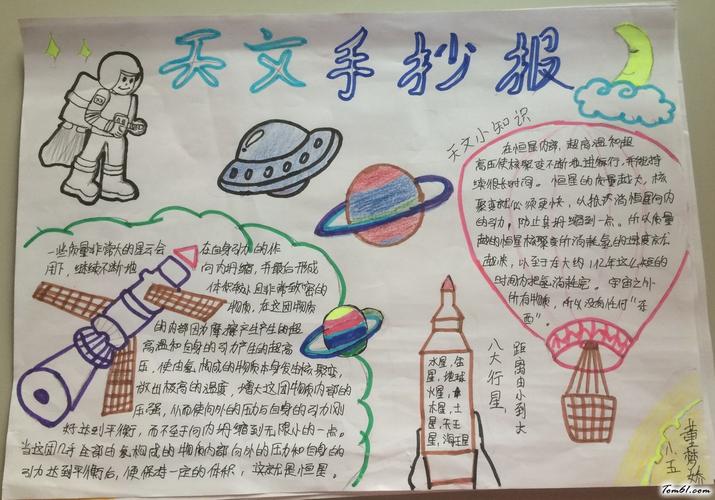 天文手抄报
天文小知识
在恒星内部，超高温和超
高压使核聚变不断地进行，并能持
续很长时间。恒星的质量越大，核
聚变就必须更快，以抵消恒星向内
的引力，防止其坍缩到一点。所以质量
越大的恒星核聚变所消耗氢的速度就
越快，以至于在大约
时间内把氢消耗完。宇宙之外
所有物质，所以没有任何“东
西”。
一些质量非常大的星云会在自身引力的作
用下，继续不断地向内坍缩，并最后形成
体积较小且非常致密的
物质，在这团物质
的内部因力摩擦产生产生的超
高温和自身的引力产生的超高
压，使由氢构成的物质本身发生核聚变，
放出极高的温度，增大这团物质内部的
压强，从而使向外的压力与自身的引力刚
好达到平衡，而不至于向内坍缩到无限小的一点。
当这团几乎全部由氢构成的物质内部向外的压力和自身的
引力达到平衡后，便保持一定的体积，这就是恒星。
水星，金
星，地球
火星，木
星，土
星，天王
星，海王星
八大行星
距离由小到大
五
董梦娇
Tom61.com